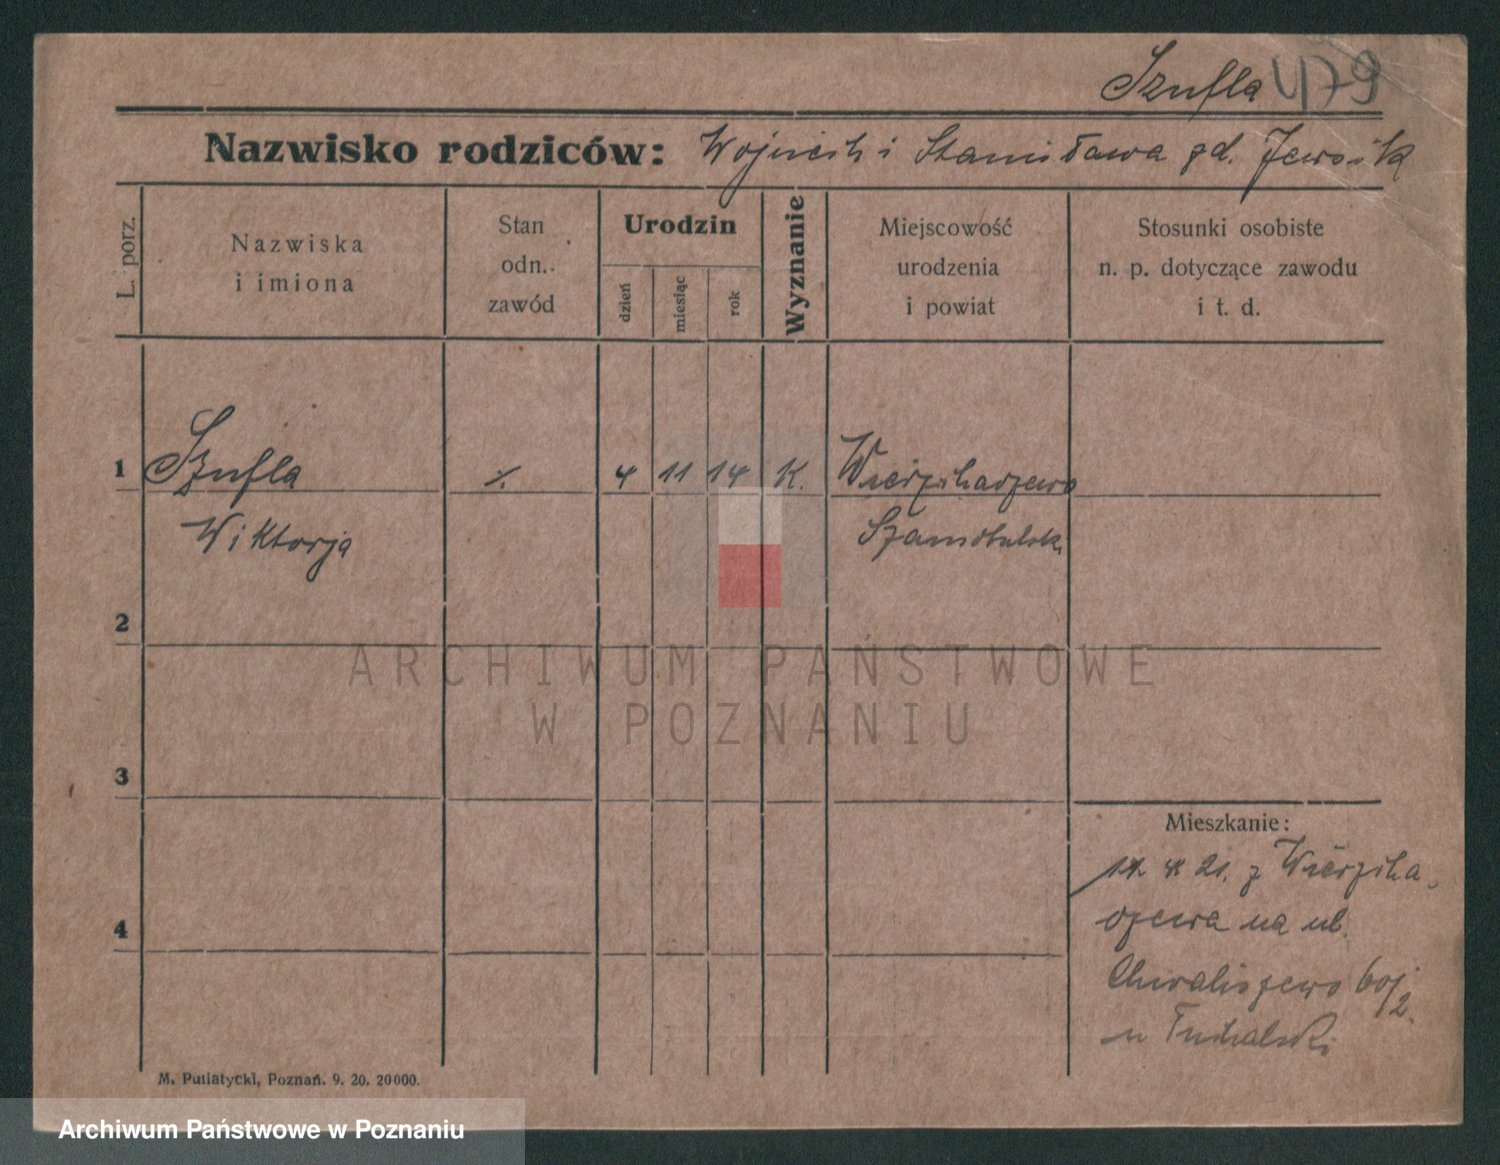 Szufla 479
Nazwisko rodziców: Wojciech i Stanisława gd.
L. porz.
Nazwiska
i imiona
Stan
odn.
zawód
Urodzin
dzień
miesiąc
rok
Wyznanie
Miejscowość
urodzenia
i powiat
Stosunki osobiste
n. p. dotyczące zawodu
i t. d.
1 Szufla 4 11 14 K.
Wiktorja
2
ARCHIWUM PAŃSTWOWE
W POZNANIU
3
Mieszkanie:
21. z
4 na ul.
Chwaliszewo 60/2
u
M. Putiatycki, Poznań. 9. 20. 20000.
Archiwum Państwowe w Poznaniu